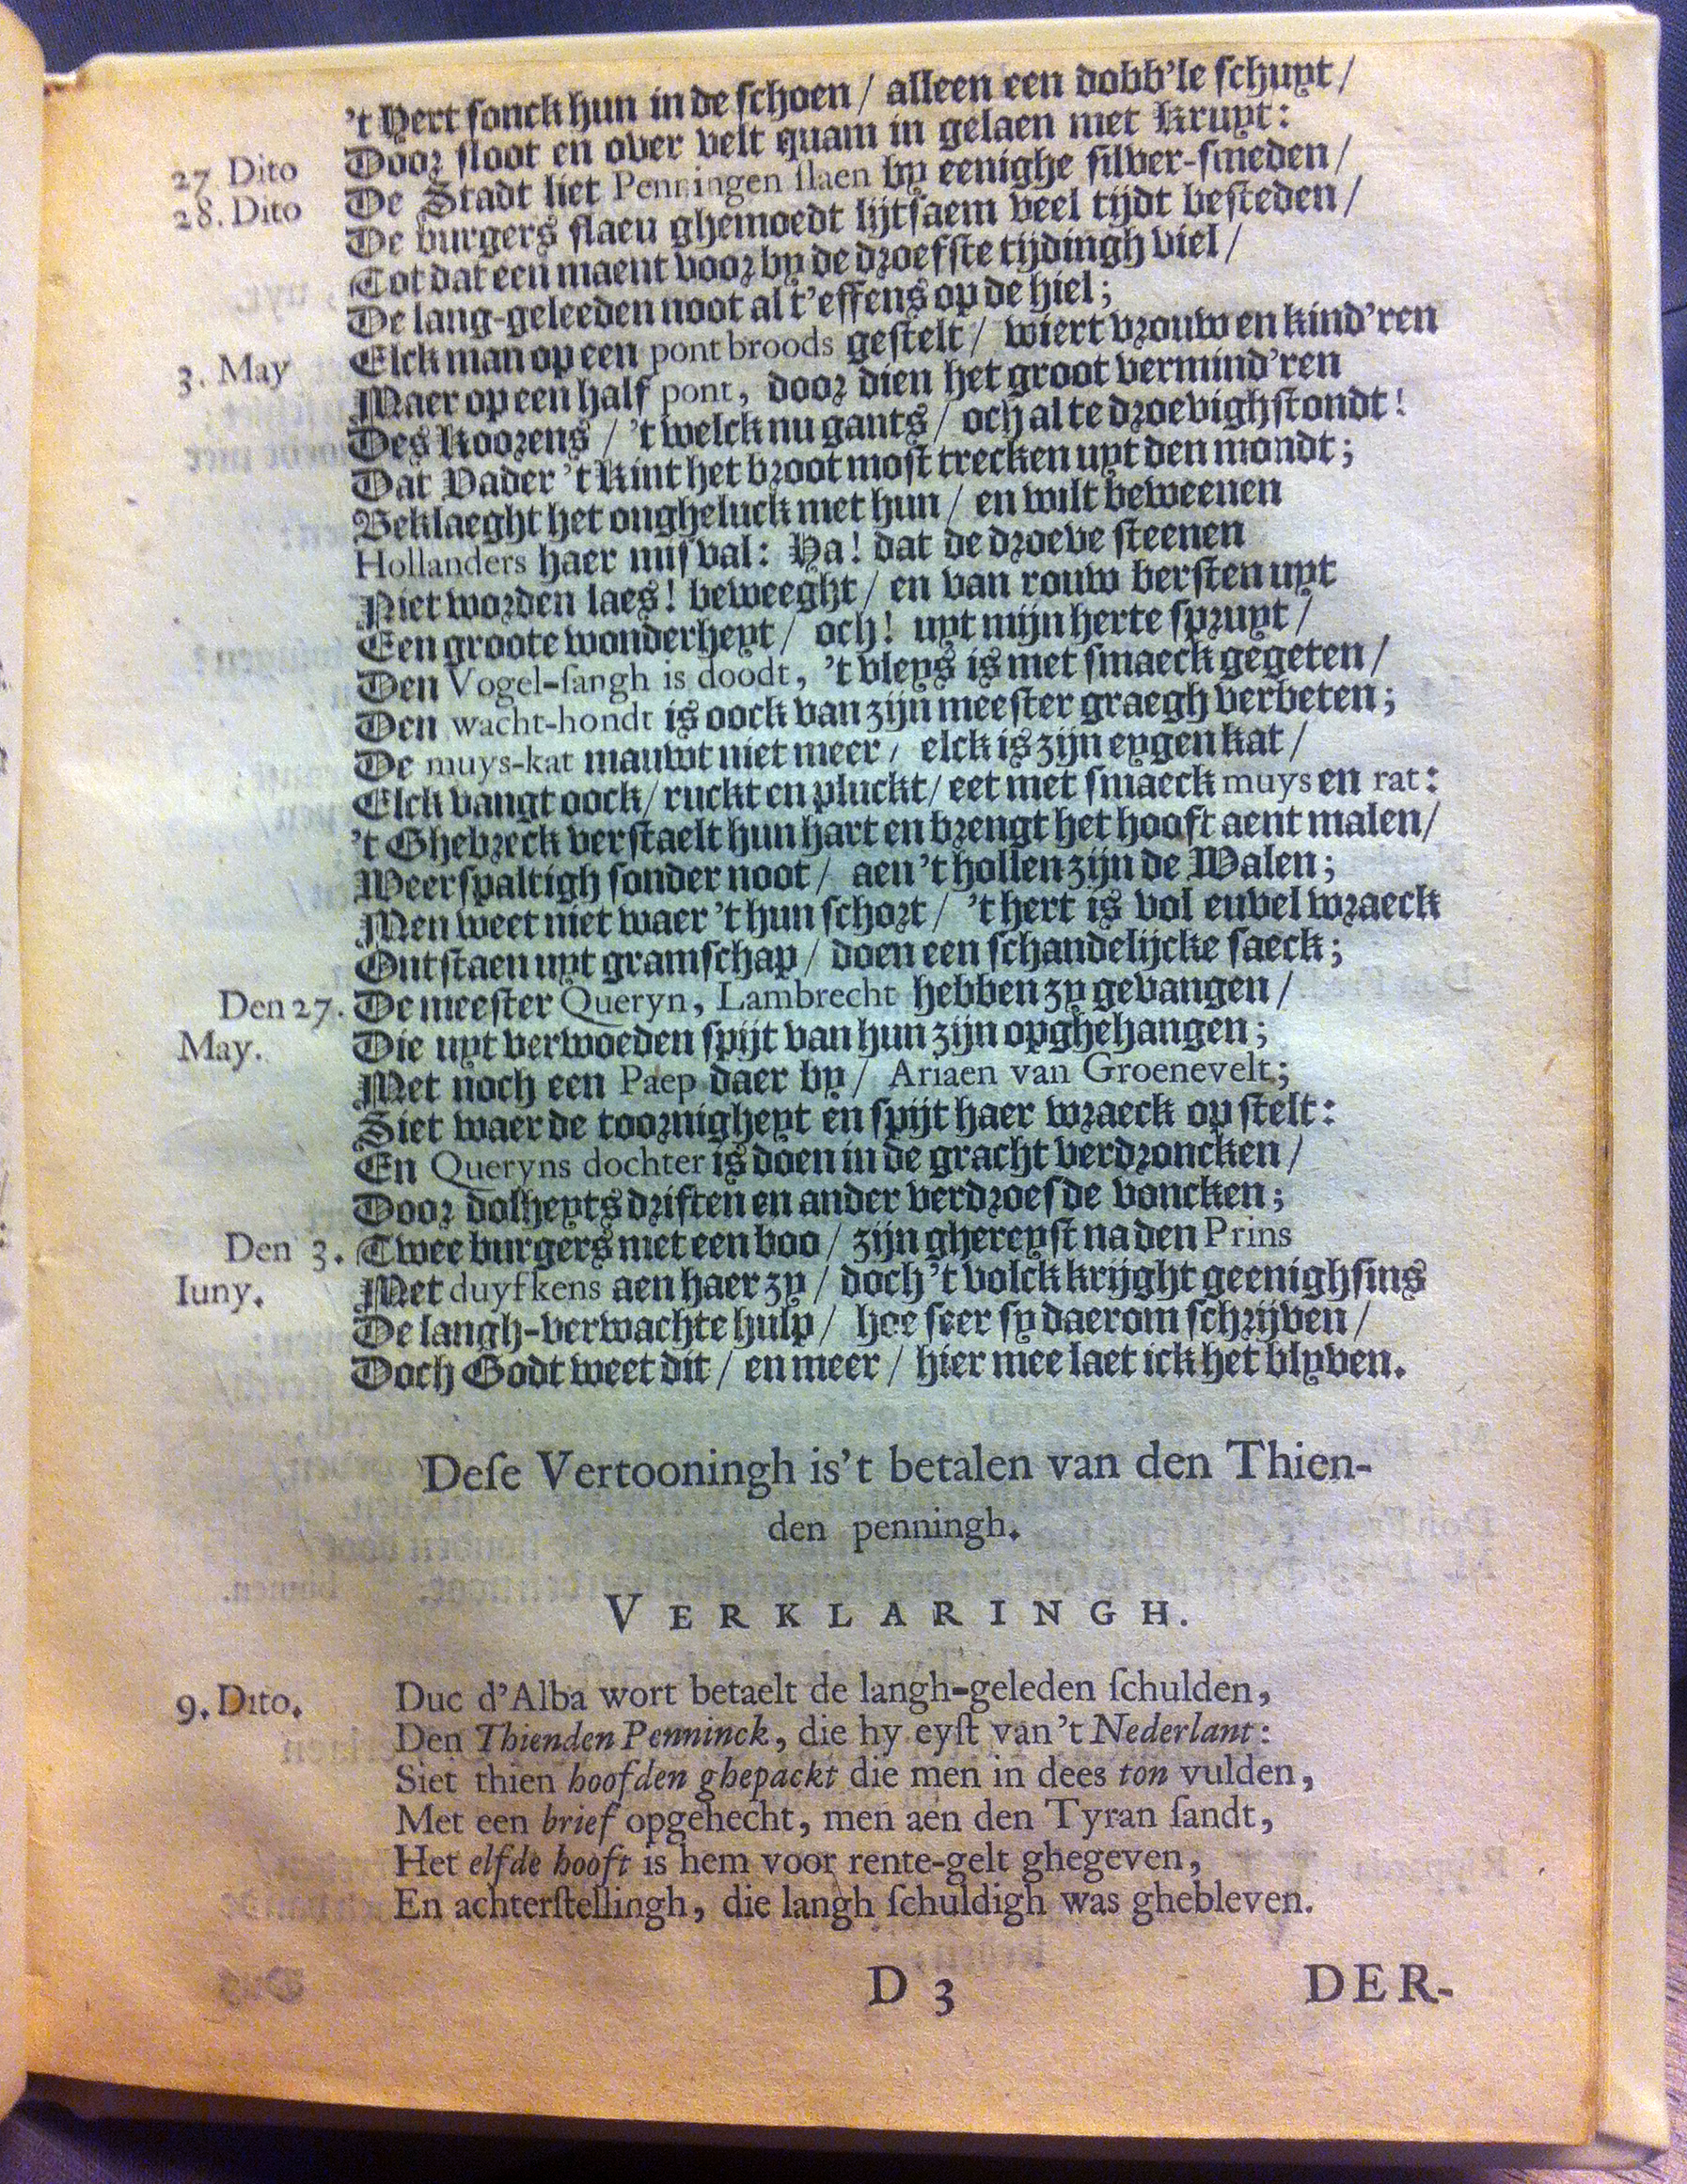 't Hert sonck hun in de schoen / alleen een dobb'le schuyt /
Door sloot en over velt quam in gelaen met Kruyt:
27 Dito De Stadt liet Penningen slaen by eenighe silver-smeden /
28. Dito De burgers slaeu ghemoedt lijtsaem veel tijdt besteden /
Tot dat een maent voor by de droefste tijdingh viel /
De lang-geleeden noot al t'effens op de hiel;
3. May Elck man op een pont broods gestelt / wiert vrouw en kind'ren
Maer op een half pont, door dien het groot vermind'ren
Des Koorens / 't welck nu gants / och al te droevigh stondt!
Dat Vader 't Kint het broot most trecken uyt den mondt;
Beklaeght het ongheluck met hun / en wilt beweenen
Hollanders haer misval: Ha! dat de droeve steenen
Niet worden laes! beweeght / en van rouw bersten uyt
Een groote wonderheyt / och! uyt mijn herte spruyt /
Den Vogel-sangh is doodt, 't vleys is met smaeck gegeten /
Den wacht-hondt is oock van zijn meester graegh verbeten;
De muys-kat mauwt niet meer / elck is zijn eygen kat /
Elck vangt oock / ruckt en pluckt / eet met smaeck muys en rat:
't Ghebreck verstaelt hun hart en brengt het hooft aent malen /
Weerspaltigh sonder noot / aen 't hollen zijn de Walen;
Men weet niet waer 't hun schort / 't hert is vol euvel wraeck
Ontstaen uyt gramschap / doen een schandelijcke saeck;
Den 27. De meester Queryn, Lambrecht hebben zy gevangen /
May. Die uyt verwoeden spijt van hun zijn opghehangen;
Met noch een Paep daer by / Ariaen van Groenevelt;
Siet waer de toornigheyt en spijt haer wraeck op stelt:
En Queryns dochter is doen in de gracht verdroncken /
Door dolheyts driften en ander verdroesde voncken;
Den 3. Twee burgers met een boo / zijn ghereyst na den Prins
Iuny. Met duyfkens aen haer zy / doch 't volck krijght geenighsins
De langh-verwachte hulp / hoe seer sy daerom schrijven /
Doch Godt weet dit / en meer / hier mee laet ick het blyven.
Dese Vertooningh is't betalen van den Thien-
den penningh.
VERKLARINGH.
9. Dito. Duc d'Alba wort betaelt de langh-geleden schulden,
Den Thienden Penninck, die hy eyst van't Nederlant:
Siet thien hoofden ghepackt die men in dees ton vulden,
Met een brief opgehecht, men aen den Tyran sandt,
Het elfde hooft is hem voor rente-gelt ghegeven,
En achterstellingh, die langh schuldigh was ghebleven.
D 3 DER-